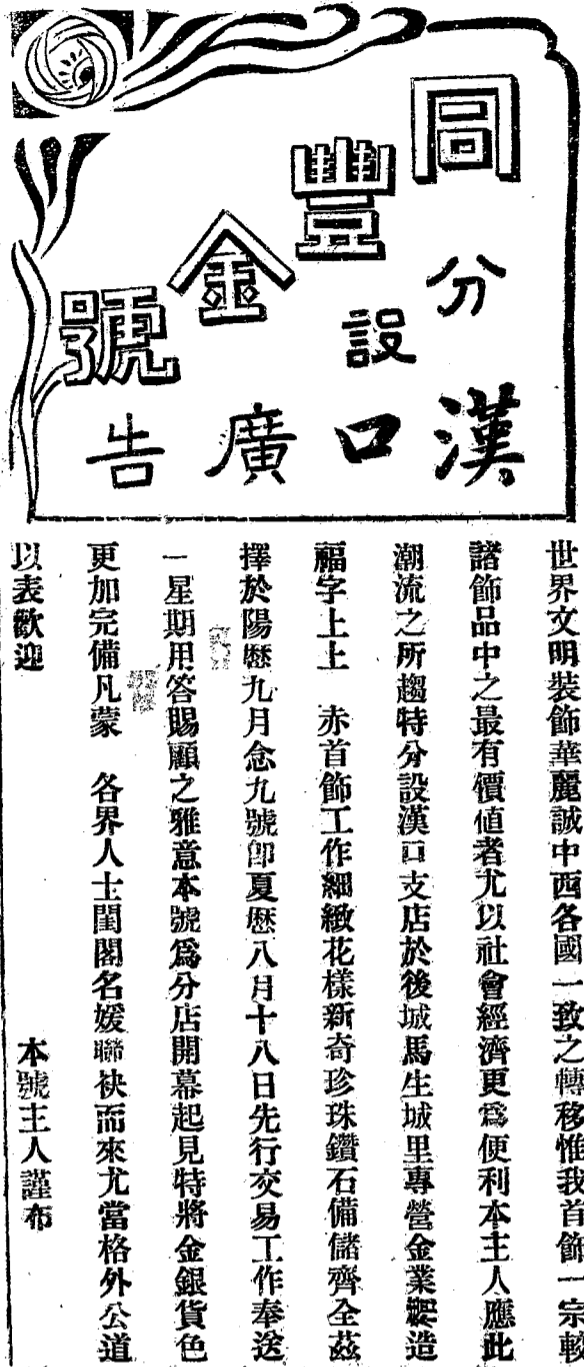 同豐金號
分設漢口廣告
世界文明裝飾華麗誠中西各國一致之轉移惟我首飾一宗較
諸飾品中之最有價値者尤以社會經濟更爲便利本主人應此
潮流之所趨特分設漢口支店於後城馬生城里專營金業製造
福字上上　赤首飾工作細緻花樣新奇珍珠鑽石備儲齊全茲
擇於陽曆九月念九號卽夏曆八月十八日先行交易工作奉送
一星期用答賜顧之雅意本號爲分店開幕起見特將金銀貨色
更加完備凡蒙　各界人士閨閣名媛聯袂而來尤當格外公道
以表歡迎
本號主人謹布